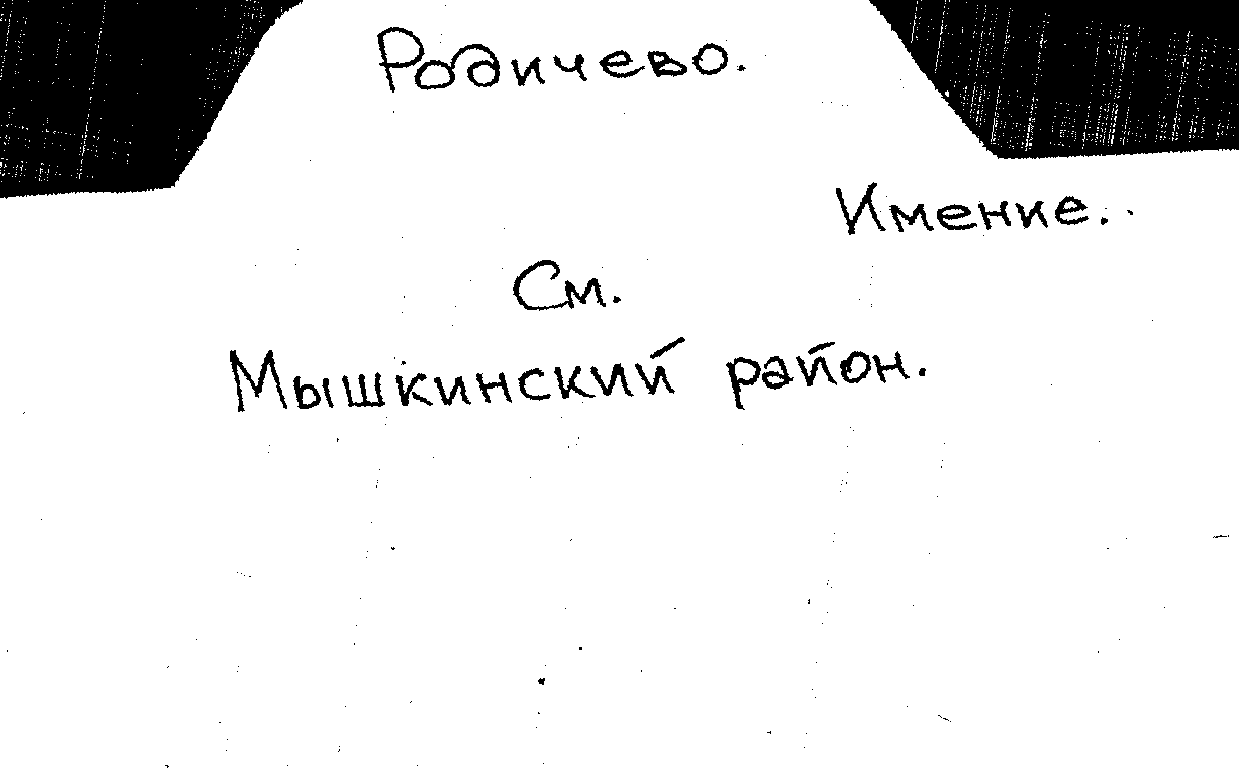 Родичево.
Имение.
См.
Мышкинский район.